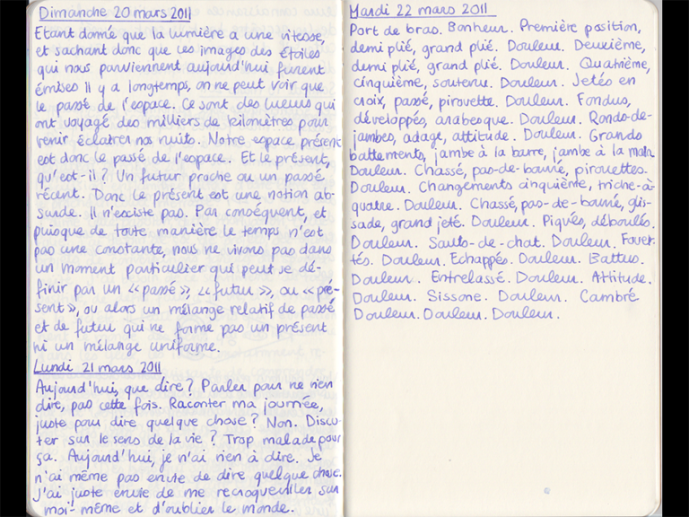 Dimanche 20 mars 2011
Etant donné que la lumière a une vitesse,
et sachant donc que les images des étoiles
qui nous parviennent aujourd'hui furent
émises il y a longtemps, on ne peut voir que
le passé de l'espace. Ce sont des lueurs qui
ont voyagé des milliers de kilomètres pour
venir éclairer nos nuits. Notre espace présent
est donc le passé de l'espace. Et le présent,
qu'est-il ? Un futur proche ou un passé
récent. Donc le présent est une notion ab-
surde. Il n'existe pas. Par conséquent, et
puisque de toute manière le temps n'est
pas une constante, nous ne vivons pas dans
un moment particulier qui peut se dé-
finir par un «passé», «futur», ou «pré-
sent», ou alors un mélange relatif de passé
et de futur qui ne forme pas un présent
ni un mélange uniforme.
Lundi 21 mars 2011
Aujourd'hui, que dire ? Parler pour ne rien
dire, pas cette fois. Raconter ma journée,
juste pour dire quelque chose ? Non. Discu-
ter sur le sens de la vie ? Trop malade pour
ça. Aujourd'hui, je n'ai rien à dire. Je
n'ai même pas envie de dire quelque chose.
J'ai juste envie de me recroqueviller sur
moi-même et d'oublier le monde.
Mardi 22 mars 2011
Port de bras. Bonheur. Première position,
demi plié, grand plié. Douleur. Deuxième,
demi plié, grand plié. Douleur. Quatrième,
cinquième, soutenu. Douleur. Jetés en
croix, passé, pirouette. Douleur. Fondus,
développés, arabesque. Douleur. Ronds-de-
jambes, adage, attitude. Douleur. Grands
battements, jambe à la barre, jambe à la main.
Douleur. Chassé, pas-de-bourré, pirouettes.
Douleur. Changements cinquième, triche-à-
quatre. Douleur. Chassé, pas-de-bourré, glis-
sade, grand jeté. Douleur. Piqués, déboulés.
Douleur. Sauts-de-chat. Douleur. Fouet-
tés. Douleur. Echappés. Douleur. Battus.
Douleur. Entrelassé. Douleur. Attitude.
Douleur. Sissone. Douleur. Cambré
Douleur. Douleur. Douleur.